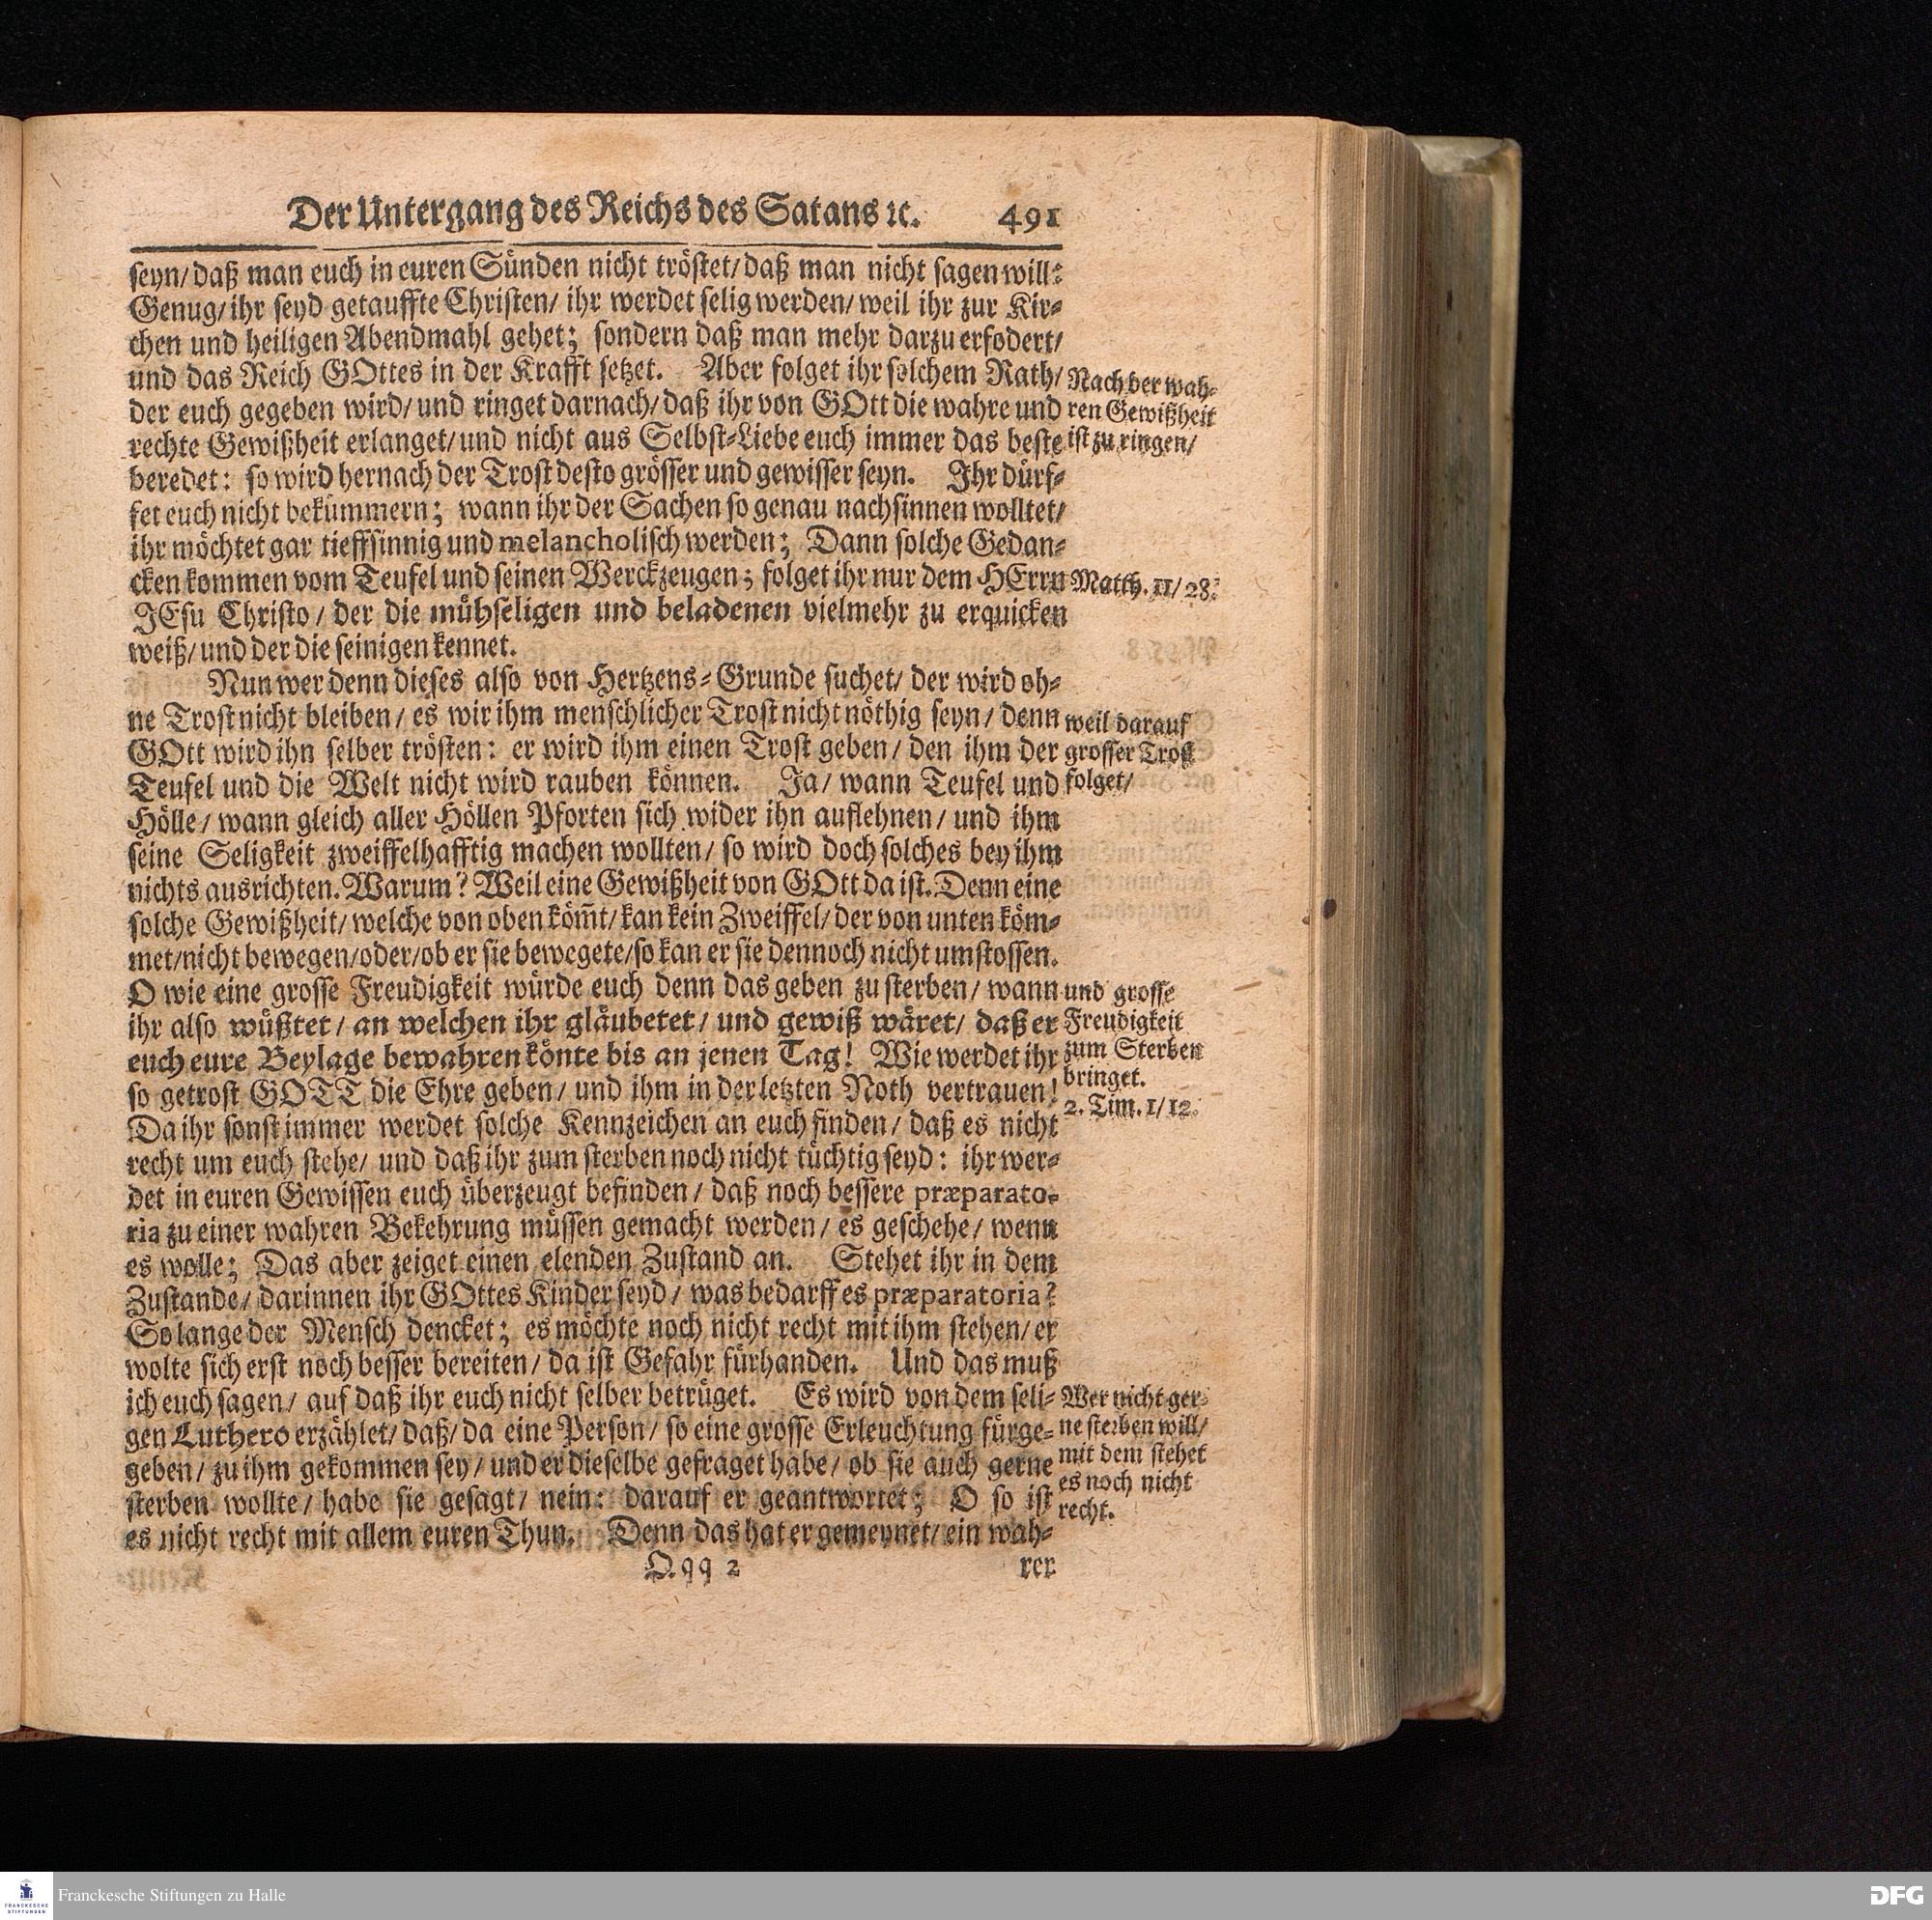 Der Untergang des Reichs des Satans ꝛc. 491
seyn/ daß man euch in euren Sünden nicht tröstet/ daß man nicht sagen will:
Genug/ ihr seyd getauffte Christen/ ihr werdet selig werden/ weil ihr zur Kir-
chen und heiligen Abendmahl gehet; sondern daß man mehr darzu erfodert/
und das Reich GOttes in der Krafft setzet. Aber folget ihr solchem Rath/
der euch gegeben wird/ und ringet darnach/ daß ihr von GOtt die wahre und
rechte Gewißheit erlanget/ und nicht aus Selbst-Liebe euch immer das beste
beredet: so wird hernach der Trost desto grösser und gewisser seyn. Ihr dürf-
fet euch nicht bekümmern; wann ihr der Sachen so genau nachsinnen wolltet/
ihr möchtet gar tieffsinnig und melancholisch werden; Dann solche Gedan-
cken kommen vom Teufel und seinen Werckzeugen; folget ihr nur dem HErrn
JEsu Christo/ der die mühseligen und beladenen vielmehr zu erquicken
weiß/ und der die seinigen kennet.
Nach der wah-
ren Gewißheit
ist zu ringen/
Matth. 11/ 28.
Nun wer denn dieses also von Hertzens-Grunde suchet/ der wird oh-
ne Trost nicht bleiben/ es wir ihm menschlicher Trost nicht nöthig seyn/ denn
GOtt wird ihn selber trösten: er wird ihm einen Trost geben/ den ihm der
Teufel und die Welt nicht wird rauben können. Ja/ wann Teufel und
Hölle/ wann gleich aller Höllen Pforten sich wider ihn auflehnen/ und ihm
seine Seligkeit zweiffelhafftig machen wollten/ so wird doch solches bey ihm
nichts ausrichten. Warum? Weil eine Gewißheit von GOtt da ist. Denn eine
solche Gewißheit/ welche von oben köm̃t/ kan kein Zweiffel/ der von unten köm-
met/ nicht bewegen/ oder/ ob er sie bewegete/ so kan er sie dennoch nicht umstossen.
O wie eine grosse Freudigkeit würde euch denn das geben zu sterben/ wann
ihr also wüßtet/ an welchen ihr gläubetet/ und gewiß wäret/ daß er
euch eure Beylage bewahren könte bis an jenen Tag! Wie werdet ihr
so getrost GOTT die Ehre geben/ und ihm in der letzten Noth vertrauen!
Da ihr sonst immer werdet solche Kennzeichen an euch finden/ daß es nicht
recht um euch stehe/ und daß ihr zum sterben noch nicht tüchtig seyd: ihr wer-
det in euren Gewissen euch überzeugt befinden/ daß noch bessere præparato-
ria zu einer wahren Bekehrung müssen gemacht werden/ es geschehe/ wenn
es wolle; Das aber zeiget einen elenden Zustand an. Stehet ihr in dem
Zustande/ darinnen ihr GOttes Kinder seyd/ was bedarff es præparatoria?
So lange der Mensch dencket; es möchte noch nicht recht mit ihm stehen/ er
wolte sich erst noch besser bereiten/ da ist Gefahr fürhanden. Und das muß
ich euch sagen/ auf daß ihr euch nicht selber betrüget. Es wird von dem seli-
gen Luthero erzählet/ daß/ da eine Person/ so eine grosse Erleuchtung fürge-
geben/ zu ihm gekommen sey/ und er dieselbe gefraget habe/ ob sie auch gerne
sterben wollte/ habe sie gesagt/ nein: darauf er geantwortet; O so ist
es nicht recht mit allem euren Thun. Denn das hat er gemeynet/ ein wah-
weil darauf
grosser Trost
folget/
und grosse
Freudigkeit
zum Sterben
bringet.
2. Tim. 1/ 12.
Wer nicht ger-
ne sterben will/
mit dem stehet
es noch nicht
recht.
Qqq 2 rer
Franckesche Stiftungen zu Halle
FRANCKESCHE
STIFTUNGEN
DFG